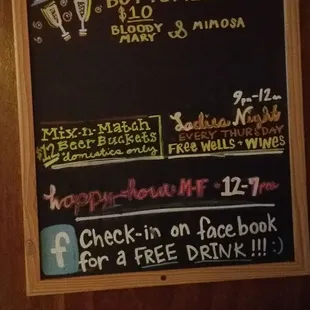 $10
BLOODY & MIMOSA
MARY
9pm-12am
Mix-n-Match
$12 Beer Buckets
domestics only
Ladies Night
EVERY THURSDAY
FREE WELLS + WINES
happy-hour M-F • 12-7pm
f Check-in on facebook
for a FREE DRINK!!! :)